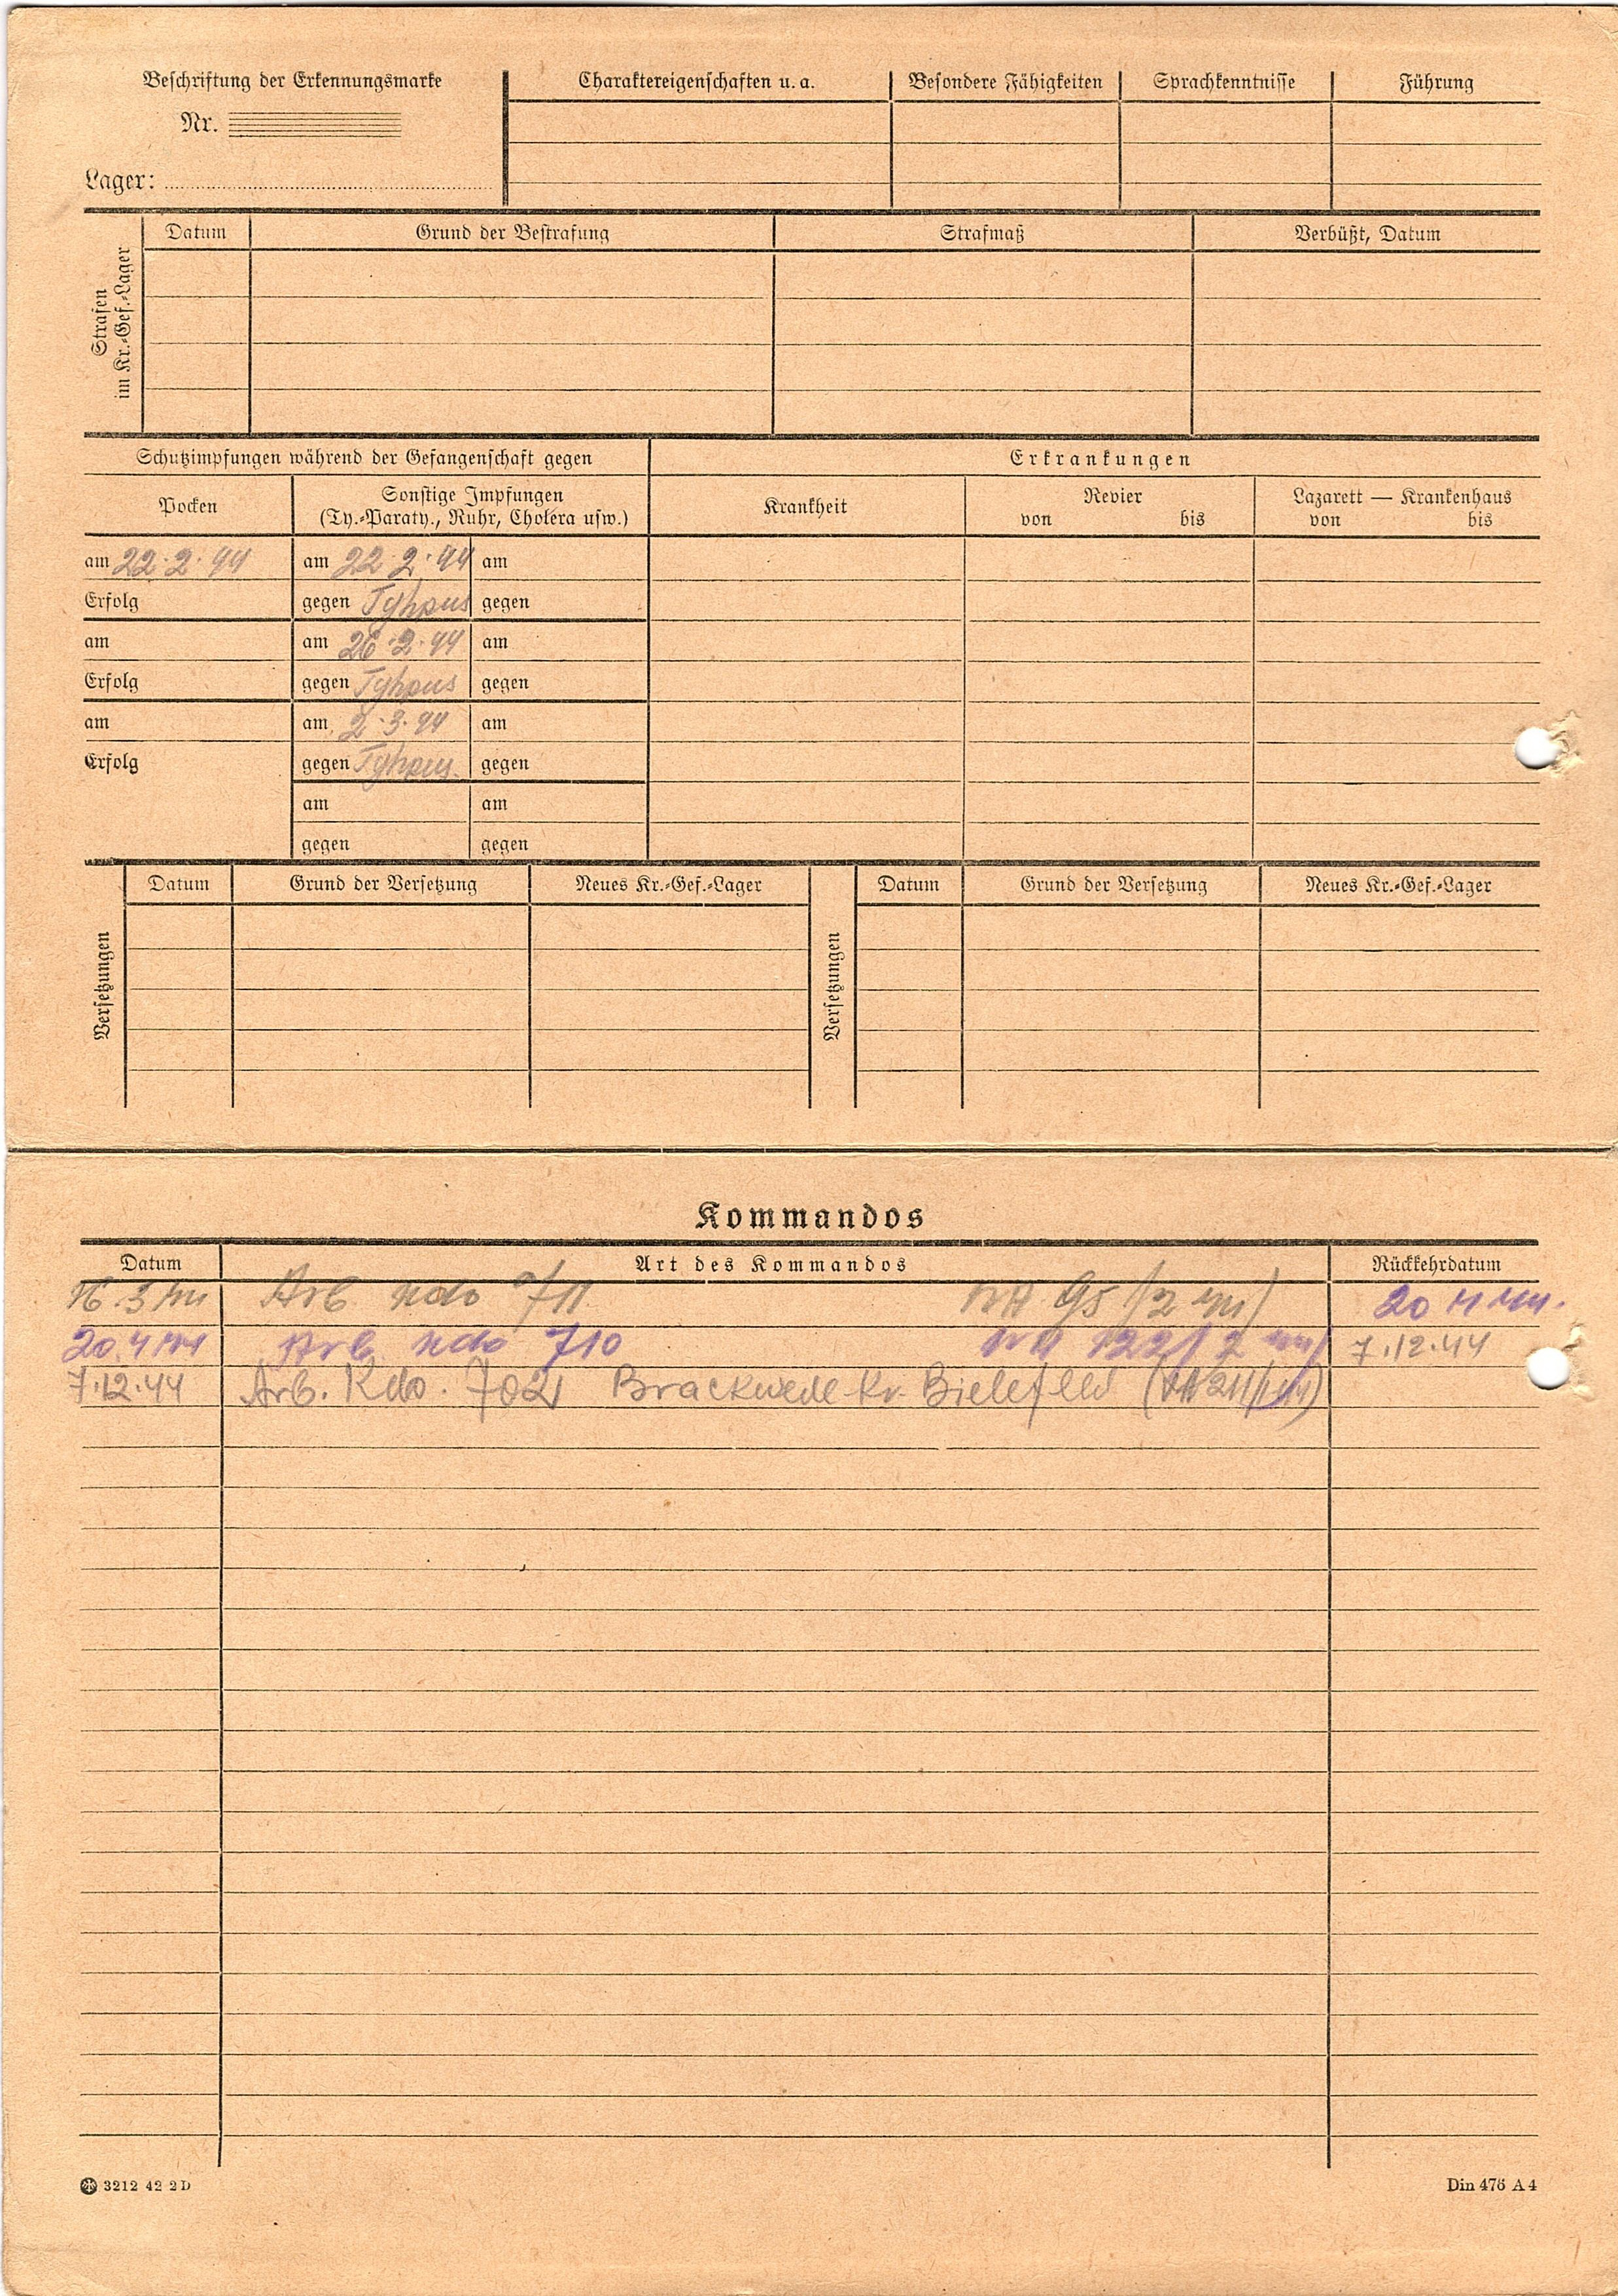 Beschriftung der Erkennungsmarke
Nr.
Lager:
Charaktereigenschaften u. a.
Besondere Fähigkeiten
Sprachkenntnisse
Führung
Strafen
im Kr.-Gef.-Lager
Datum
Grund der Bestrafung
Strafmaß
Verbüßt, Datum
Schutzimpfungen während der Gefangenschaft gegen
Erkrankungen
Pocken
Sonstige Impfungen
(Ty.-Paraty., Ruhr, Cholera usw.)
Krankheit
Revier
von bis
Lazarett — Krankenhaus
von bis
am 22.2.44 am 22.2.44 am
Erfolg gegen Tyhpus gegen
am am 26.2.44 am
Erfolg gegen Tyhpus gegen
am am 2.3.44 am
Erfolg gegen Tyhpus gegen
am am
gegen gegen
Versetzungen
Datum
Grund der Versetzung
Neues Kr.-Gef.-Lager
Versetzungen
Datum
Grund der Versetzung
Neues Kr.-Gef.-Lager
Kommandos
Datum Art des Kommandos Rückkehrdatum
16.3.44 Arb. Kdo 711 95/2 44) 20 4 44.
20.4.44 Arb. Kdo 710 122/2 44) 7.12.44
7.12.44 Arb. Kdo. 702 Brackwede Kr. Bielefeld
3212 42 2D
Din 476 A4